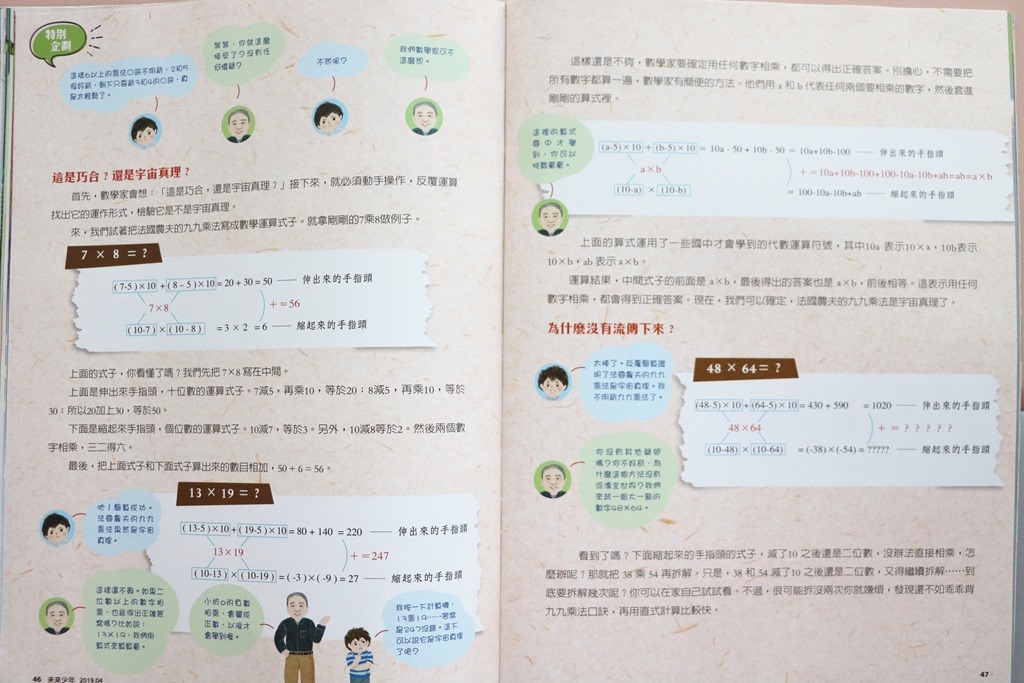 特別
企劃
這樣6以上的乘法口訣不用背，2和5
很好背，剩下只要背3和4的口訣，真
是太輕鬆了。
算算，你就這麼
接受了？沒有任
何懷疑？
不然呢？
我們數學家可不
這麼想。
這是巧合？還是宇宙真理？
首先，數學家會想：「這是巧合，還是宇宙真理？」接下來，就必須動手操作，反覆運算
找出它的運作形式，檢驗它是不是宇宙真理。
來，我們試著把法國農夫的九九乘法寫成數學運算式子。就拿剛剛的7乘8做例子。
7 × 8 = ?
(7-5)×10 + (8-5)×10 = 20 + 30 = 50 —— 伸出來的手指頭
7×8
+ = 56
(10-7) × (10-8) = 3 × 2 = 6 —— 縮起來的手指頭
上面的式子，你看懂了嗎？我們先把 7×8 寫在中間。
上面是伸出來手指頭，十位數的運算式子。7減5，再乘10，等於20；8減5，再乘10，等於
30；所以20加上30，等於50。
下面是縮起來手指頭，個位數的運算式子。10減7，等於3。另外，10減8等於2。然後兩個數
字相乘，三二得六。
最後，把上面式子和下面式子算出來的數目相加，50 + 6 = 56。
13 × 19 = ?
吔！驗算成功。
法國農夫的九九
乘法果然是宇宙
真理。
(13-5)×10 + (19-5)×10 = 80 + 140 = 220 —— 伸出來的手指頭
13×19
+ = 247
(10-13) × (10-19) = (-3)×(-9) = 27 —— 縮起來的手指頭
這樣還不夠。如果二
位數以上的數字相
乘，也能得出正確答
案嗎？比如說：
13×19，我們用
算式來算算看。
小於0的負數
相乘，會變成
正數，以後才
會學到喔。
我按一下計算機，
13乘19……答案
是247沒錯。這下
可以說它是宇宙真理
了吧？
46 未來少年 2019.04
這樣還是不夠，數學家要確定用任何數字相乘，都可以得出正確答案。別擔心，不需要把
所有數字都算一遍，數學家有簡便的方法。他們用 a 和 b 代表任何兩個要相乘的數字，然後套進
剛剛的算式裡。
這裡的算式
國中才學
到，你可以
挑戰看看。
(a-5)×10 + (b-5)×10 = 10a - 50 + 10b - 50 = 10a+10b-100 —— 伸出來的手指頭
a×b
+ = 10a+10b-100+100-10a-10b+ab=ab=a×b
(10-a) × (10-b)
= 100-10a-10b+ab —— 縮起來的手指頭
上面的算式運用了一些國中才會學到的代數運算符號，其中10a 表示10×a，10b表示
10×b，ab 表示 a×b。
運算結果，中間式子的前面是 a×b，最後得出的答案也是 a×b，前後相等。這表示用任何
數字相乘，都會得到正確答案。現在，我們可以確定，法國農夫的九九乘法是宇宙真理了。
為什麼沒有流傳下來？
太棒了。反覆驗算證
明了法國農夫的九九
乘法是宇宙真理，我
不用背九九乘法了。
48 × 64 = ?
(48-5)×10 + (64-5)×10 = 430 + 590 = 1020 —— 伸出來的手指頭
48×64
+ = ? ? ? ? ?
(10-48) × (10-64) = (-38)×(-54) = ????? —— 縮起來的手指頭
你沒有其他疑問
嗎？你不好奇，為
什麼這個方法沒有
流傳全世界？我們
來試一組大一點的
數字48×64。
看到了嗎？下面縮起來的手指頭的式子，減了10 之後還是二位數，沒辦法直接相乘，怎
麼辦呢？那就把 38 乘 54 再拆解。只是，38 和 54 減了10 之後還是二位數，又得繼續拆解……到
底要拆解幾次呢？你可以在家自己試試看。不過，很可能拆沒兩次你就嫌煩，發現還不如乖乖背
九九乘法口訣，再用直式計算比較快。
47